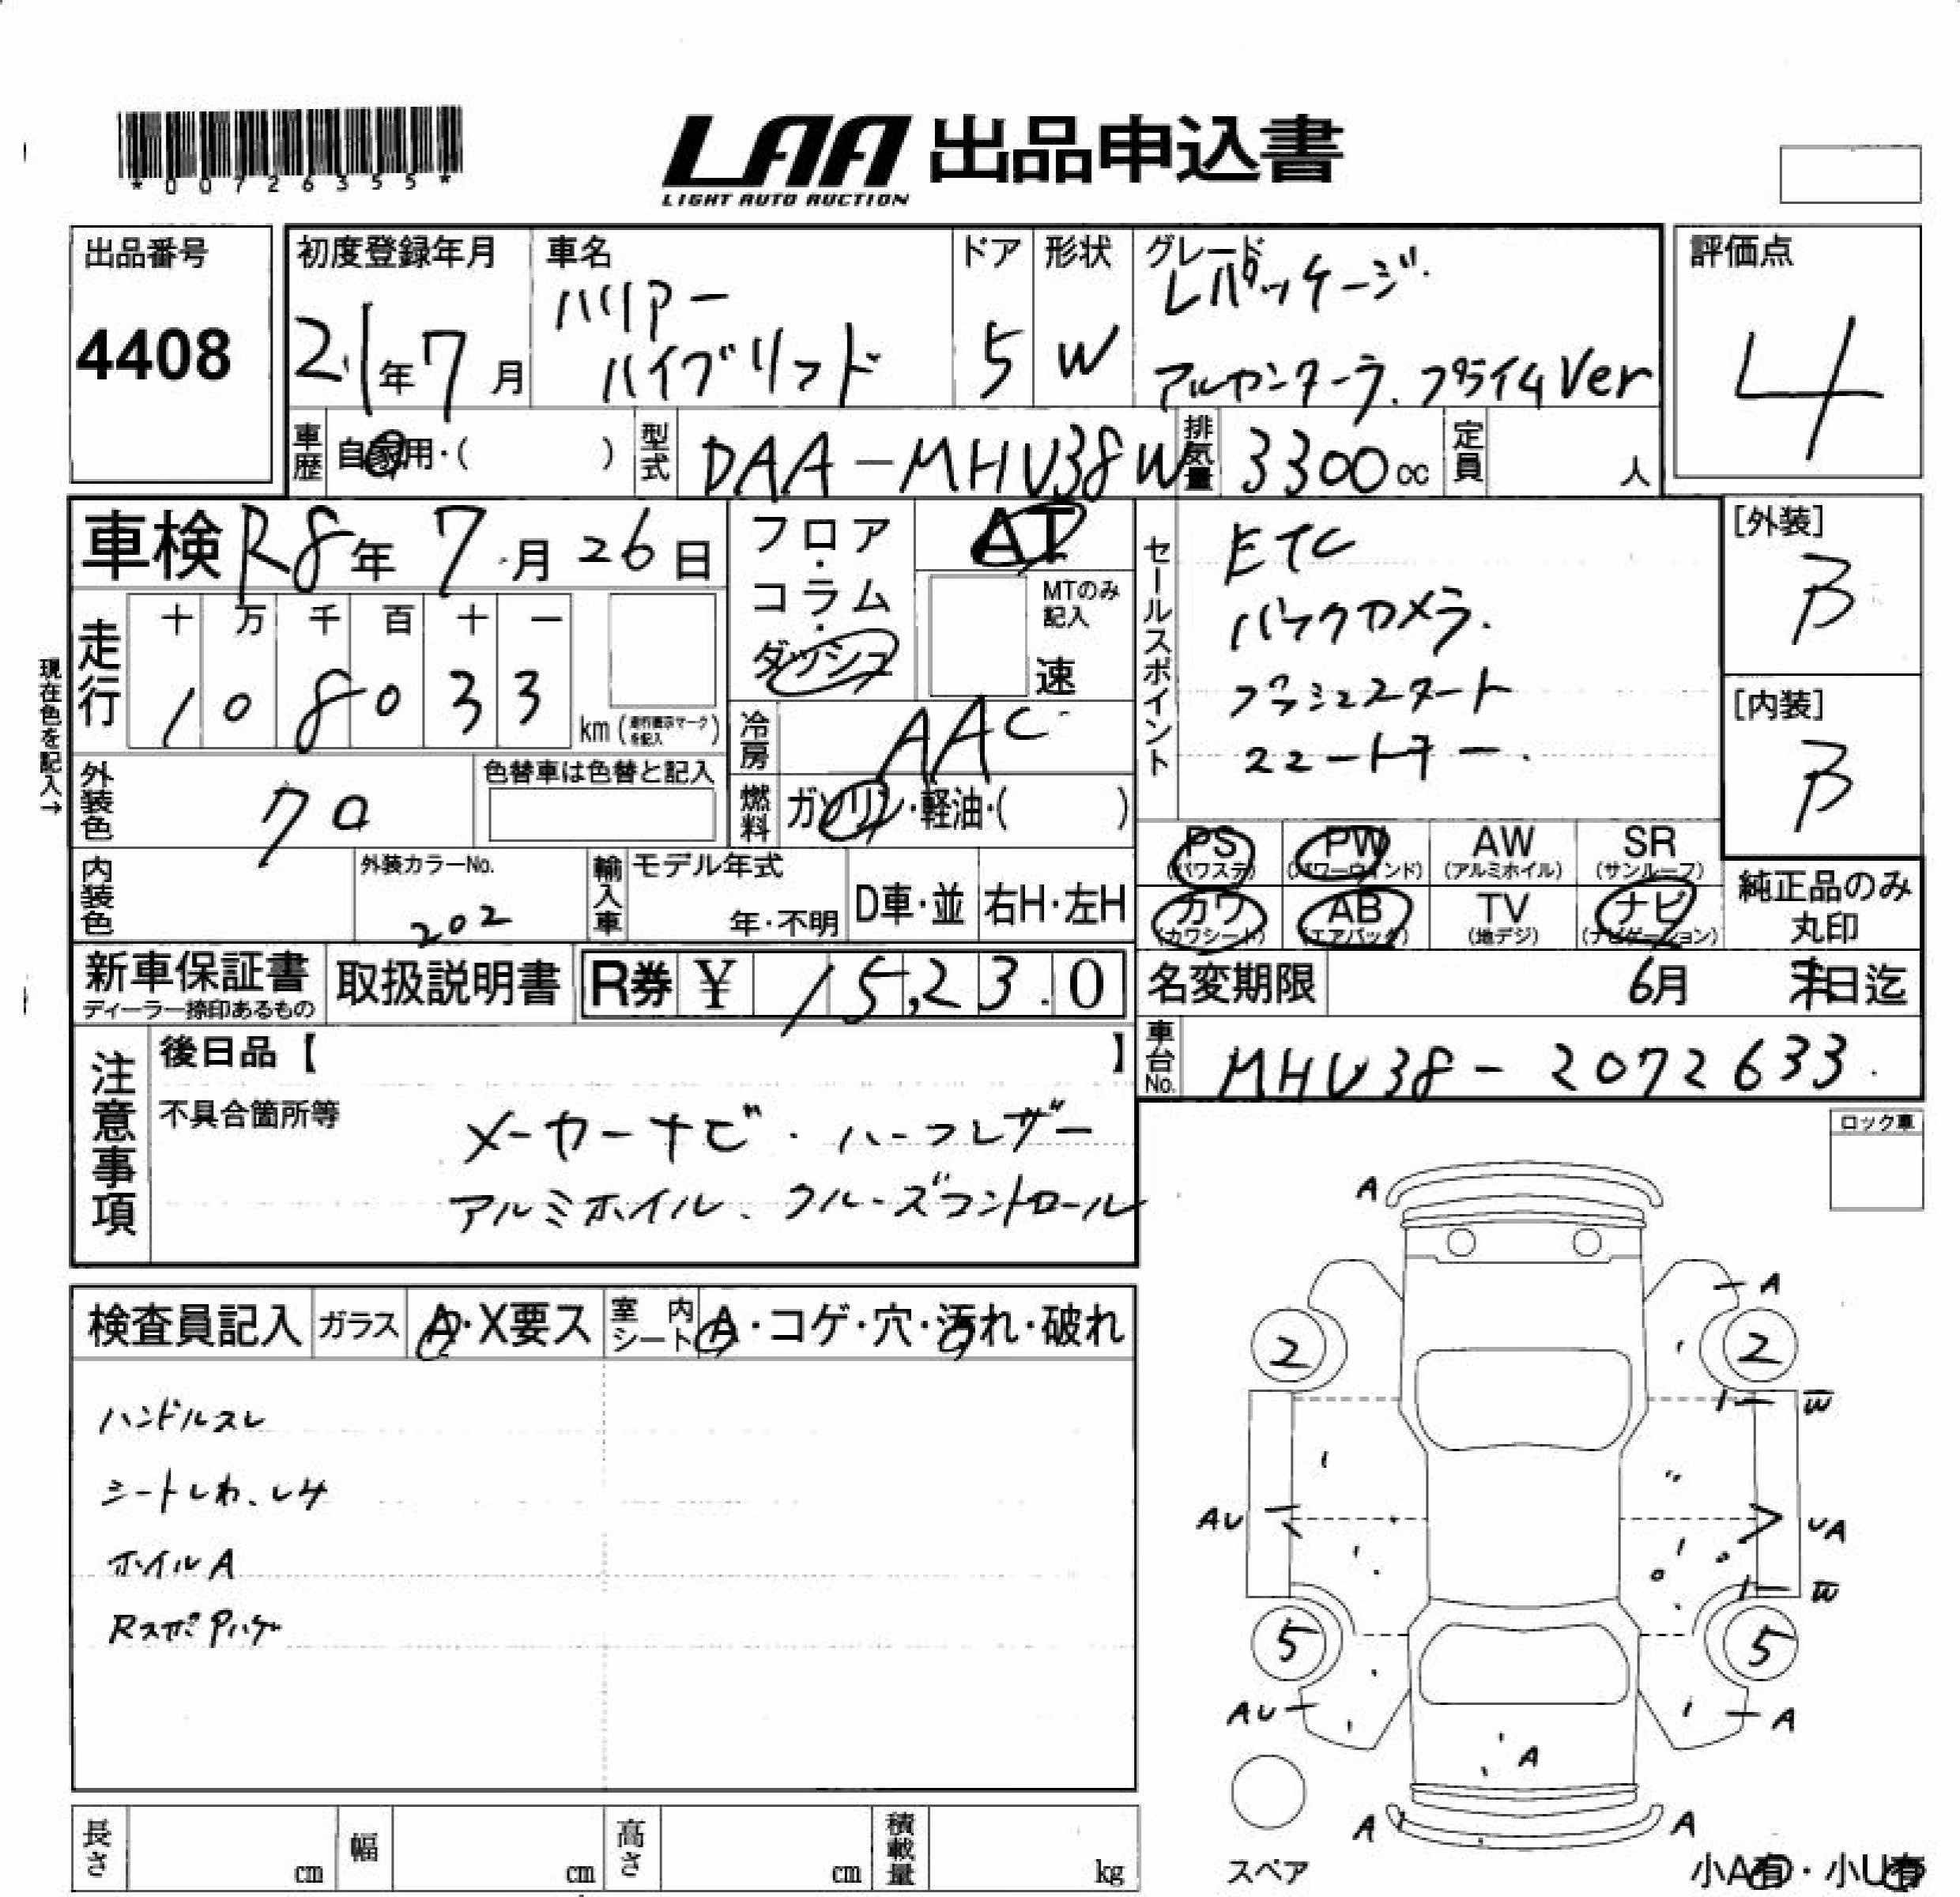 *00726355*
LAA 出品申込書
LIGHT AUTO AUCTION
出品番号
4408
初度登録年月
21年7月
車名
ハリアー
ハイブリッド
ドア
5
形状
W
グレード
Lパッケージ
アルカンターラ.プライムVer
評価点
4
車歴 自家用・( )
型式 DAA-MHU38W
排気量 3300cc
定員 人
車検 R8年 7月 26日
フロア・コラム・ダッシュ
AT
MTのみ記入
速
セールスポイント
ETC
バックカメラ.
プッシュスタート
スマートキー.
[外装]
B
[内装]
B
現在色を記入→
走行
十 万 千 百 十 一
1 0 8 0 3 3
km(走行表示マークを記入)
冷房 AAC
外装色 クロ
色替車は色替と記入
燃料 ガソリン・軽油・( )
PS (パワステ)
PW (パワーウィンド)
AW (アルミホイル)
SR (サンルーフ)
カワ (カワシート)
AB (エアバッグ)
TV (地デジ)
ナビ (ナビゲーション)
純正品のみ丸印
内装色
外装カラーNo.
202
輸入車
モデル年式
年・不明
D車・並
右H・左H
新車保証書
ディーラー捺印あるもの
取扱説明書
R券 ¥ 15,23.0
名変期限 6月 末日迄
車台No. MHU38-2072633.
注意事項
後日品【 】
不具合箇所等
メーカーナビ・ハーフレザー
アルミホイル、クルーズコントロール
ロック車
検査員記入
ガラス A・X要ス
室内シート A・コゲ・穴・汚れ・破れ
ハンドルスレ
シートしわ、しみ
ホイルA
RスポPハゲ
A
A
2
2
W
AU
UA
W
5
5
AU
A
A
A
A
スペア
小A有・小U有
長さ cm
幅 cm
高さ cm
積載量 kg